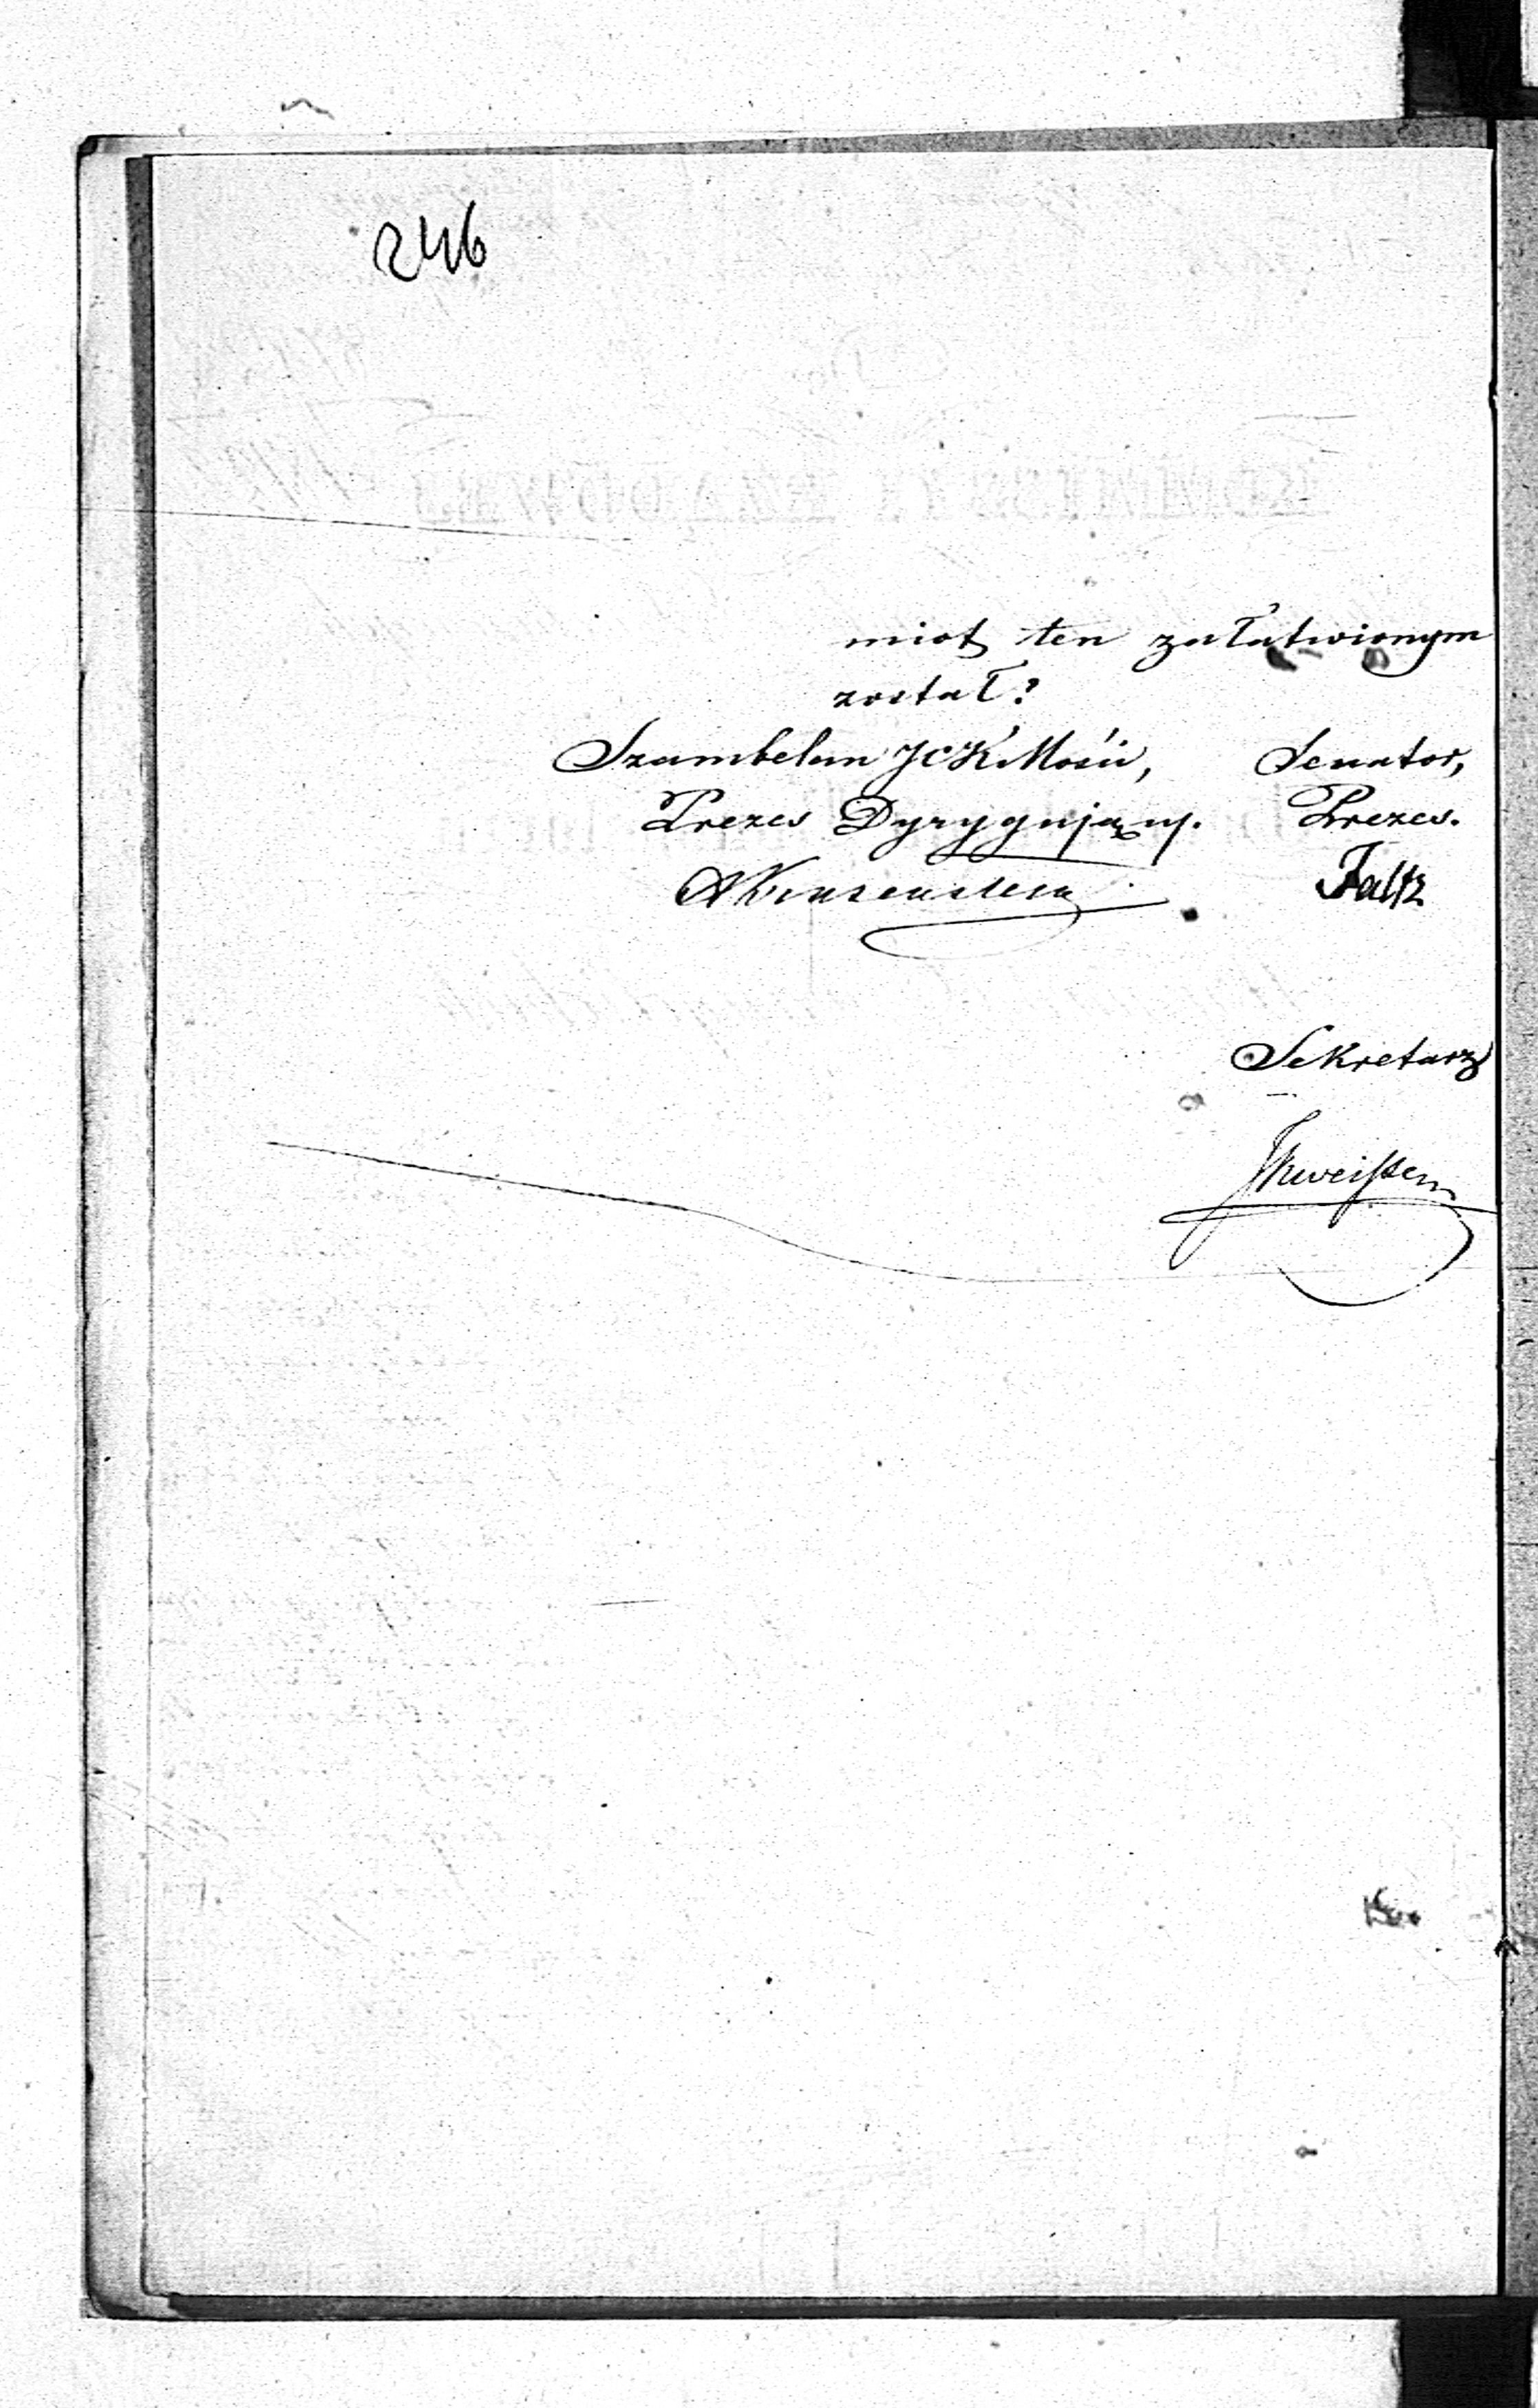 246
miot ten załatwionym
został?
Szambelan JCKMości, Senator,
Prezes Dyrygujący. Prezes.
Faltz
Sekretarz